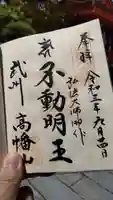 奉拝
令和三年九月十四日
弘法大師作
不動明王
武州
高幡山